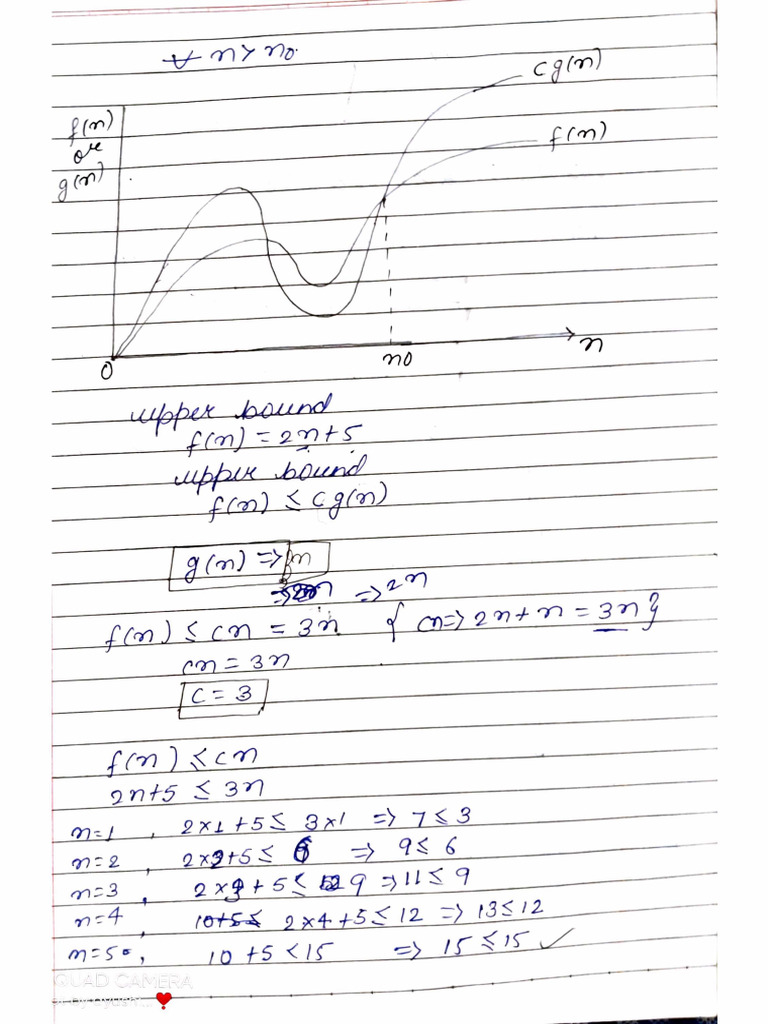 ∀ n > n0.
cg(n)
f(n)
or
g(n)
f(n)
n
0
n0
upper bound
f(n) = 2n+5
upper bound
f(n) ≤ cg(n)
g(n) => n
=> 2n
f(n) ≤ cn = 3n { cn => 2n + n = 3n }
cn = 3n
c = 3
f(n) ≤ cn
2n+5 ≤ 3n
n=1 , 2×1+5 ≤ 3×1 => 7 ≤ 3
n=2 , 2×2+5 ≤ 6 => 9 ≤ 6
n=3 , 2×3+5 ≤ 9 => 11 ≤ 9
n=4 , 10+5≤ 2×4+5 ≤ 12 => 13 ≤ 12
n=5 , 10+5 < 15 => 15 ≤ 15 ✓
QUAD CAMERA